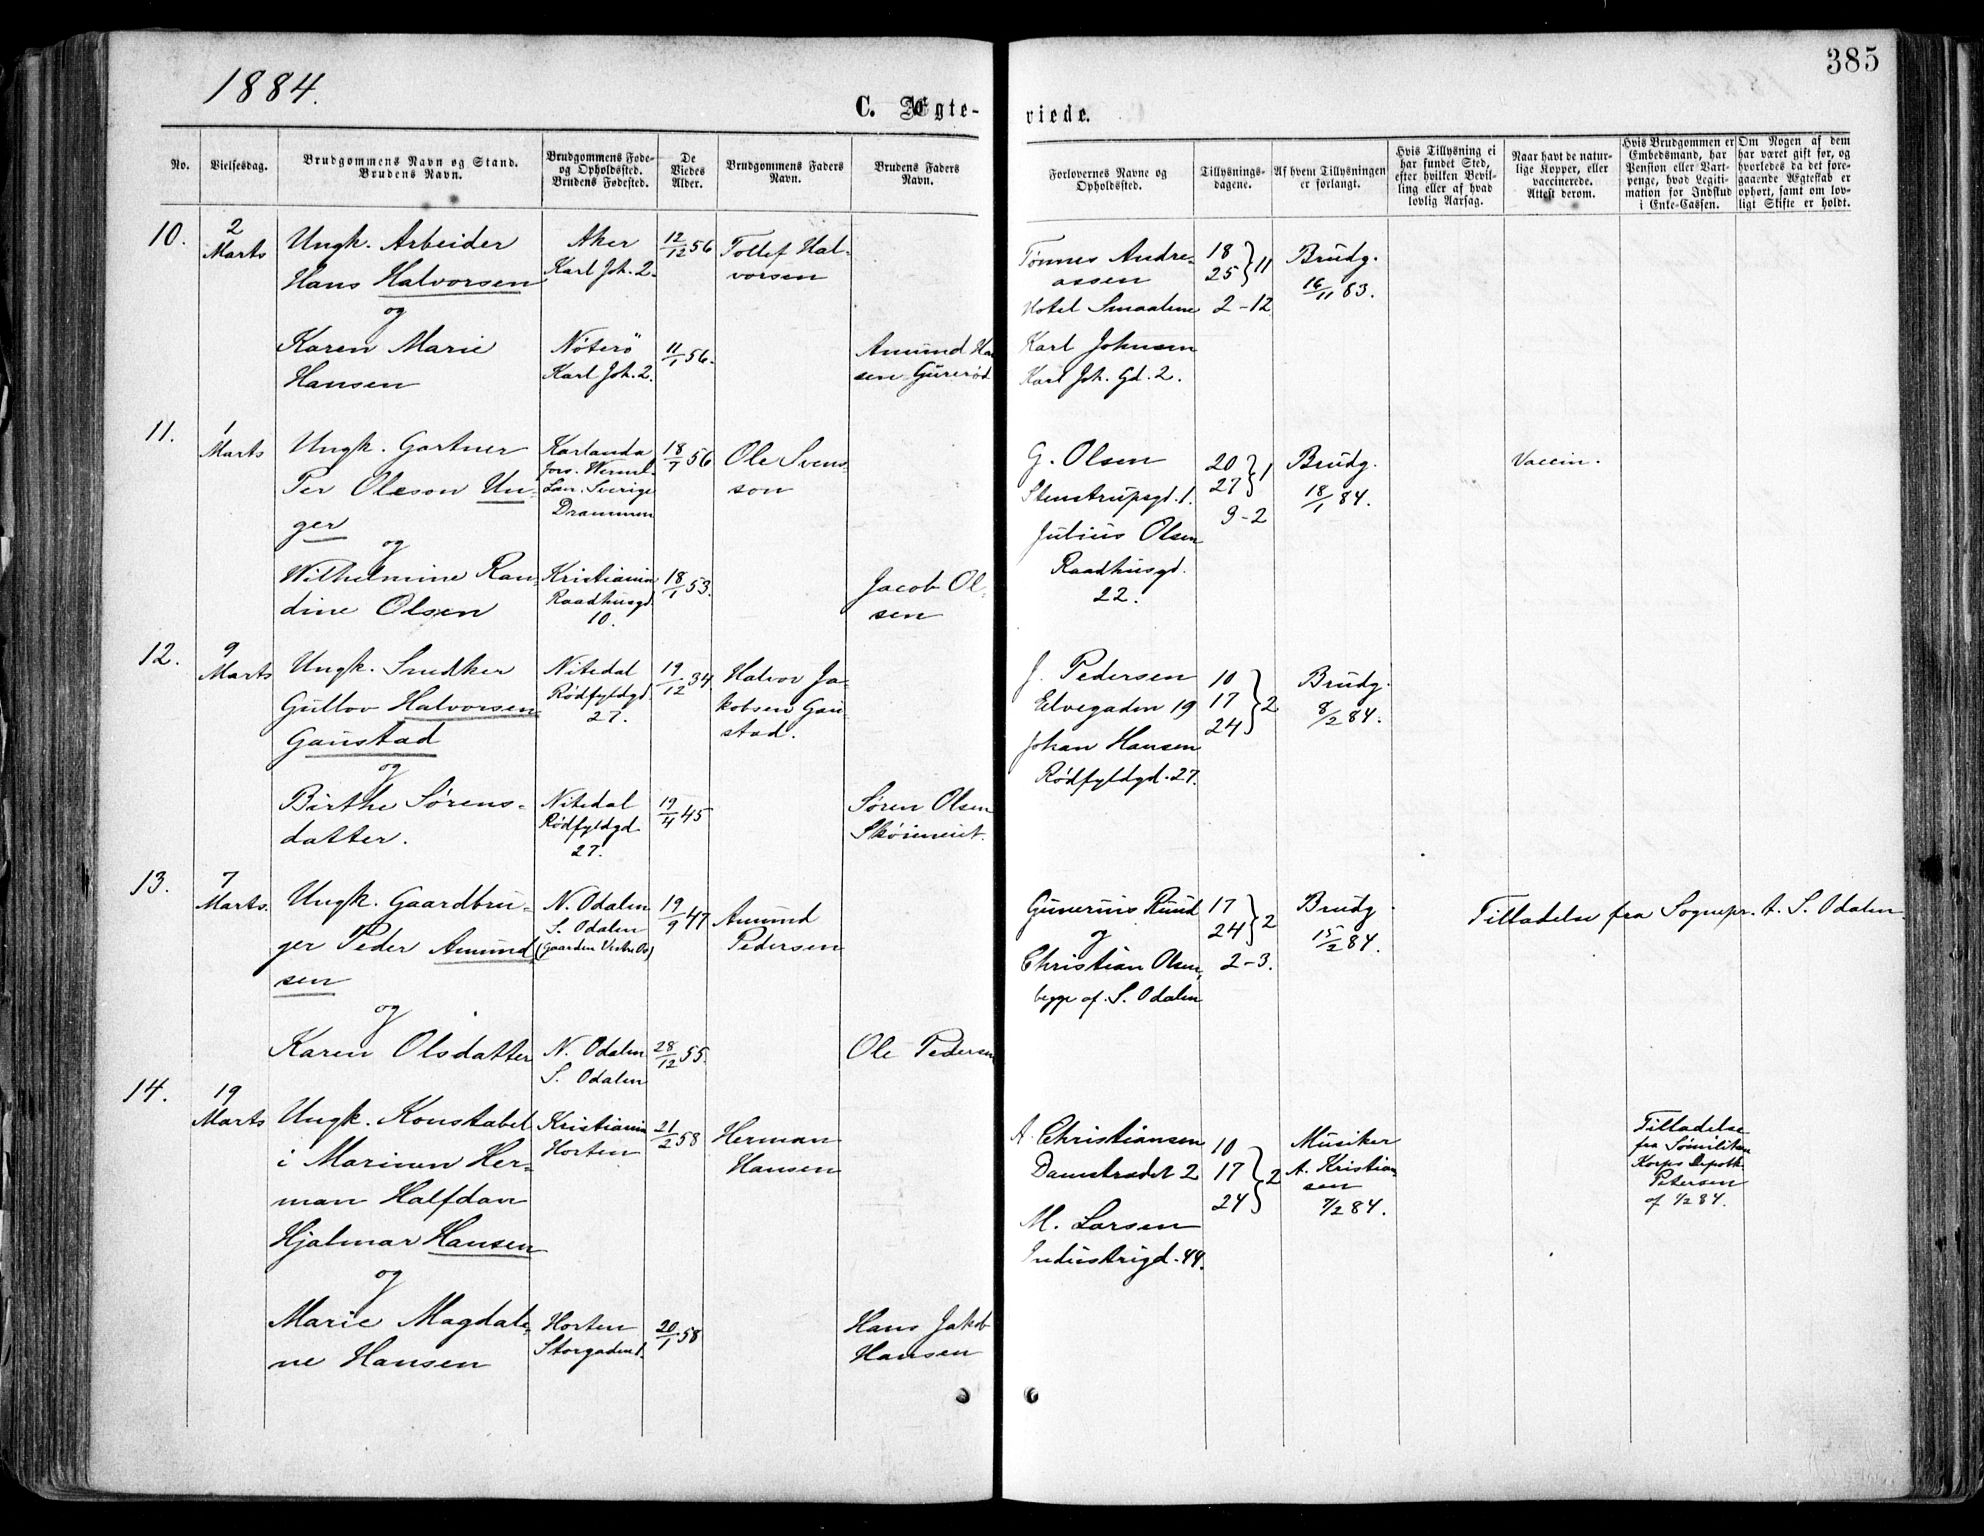 1884.
385
C. Ægte-
viede.
No.
Vielsesdag.
Brudgommens Navn og Stand.
Brudens Navn.
Brudgommens Føde-
og Opholdssted.
Brudens Fødested.
De
Viedes
Alder.
Brudgommens Faders
Navn.
Brudens Faders
Navn.
Forlovernes Navne og
Opholdssted.
Tillysnings-
dagene.
Af hvem Tillysningen
er forlangt.
Hvis Tillysning ei
har fundet Sted,
efter hvilken Bevil-
ling eller af hvad
lovlig Aarsag.
Naar havt de natur-
lige Kopper, eller
vaccinerede.
Attest derom.
Hvis Brudgommen er
Embedsmand, har
Pension eller Vart-
penge, hvad Legiti-
mation for Indskud
i Enke-Cassen.
Om Nogen af dem
har været gift før, og
hvorledes da det fore-
gaaende Ægteskab er
ophørt, samt om lov-
ligt Skifte er holdt.
10.
2
Marts
Ungk. Arbeider
Hans Halvorsen
og
Karen Marie
Hansen
Aker
Karl Joh. 2.
Nøterö
Karl Joh. 2.
12/12 56
11/1 56.
Tollef Hal-
vorsen
Amund Han
sen Gürerød
Tønnes Andre-
assen
Hotel Smaalene
Karl Johnsen
Karl Joh. Gd. 2.
18
25 } 11
2-12
Brudg.
16/11 83.
11.
1
Marts
Ungk. Gartner
Per Olsson Un-
ger
og
Wilhelmine Ran-
dine Olsen
Karlanda
fors. Werml.
Län. Sverige
Drammen
Kristiania
Raadhusgd.
10.
18/7 56
18/1 53.
Ole Svens
son
Jacob Ol-
sen
G. Olsen
Stenstrupsgd. 1.
Julius Olsen
Raadhusgd.
22.
20
27 } 1
3-2
Brudg.
18/1 84.
Vaccin.
12.
9
Marts
Ungk. Snedker
Gullov Halvorsen
Gaustad
og
Birthe Sørens-
datter.
Nitedal
Rødfyldgd
27.
Nitedal
Rødfyldgd
27.
19/12 34
19/4 45
Halvor Ja-
kobsen Gau
stad.
Søren Olsen
J. Pedersen
Elvegaden 19
Johan Hansen
Rødfyldgd. 27.
10
17
24 } 2
Brudg.
8/2 84.
13.
7
Marts.
Ungk. Gaardbru-
ger Peder Amund
sen
og
Karen Olsdatter
N. Odalen
S. Odalen
(Gaarden Vestre Os)
N. Odalen
S. Odalen
19/9 47
28/12 55.
Amund
Pedersen
Ole Pedersen
Gunerius Ruud
og
Christian Olsen,
begge af S. Odalen
17
24 } 2
2-3.
Brudg.
15/2 84.
Tilladelse fra Sognepr. t. S. Odalen.
14.
19
Marts
Ungk. Konstabel
i Marinen Her-
man Halfdan
Hjalmar Hansen
og
Marie Magdale-
ne Hansen
Kristiania
Horten
Horten
Storgaden 1.
21/2 58
20/1 58
Herman
Hansen
Hans Jakob
Hansen
A. Christiansen
Damstrædet 2
M. Larsen
Industrigd. 44.
10
17
24 } 2
Musiker
A. Kristian-
sen
7/2 84.
Tilladelse
fra Sømilitære
Korps Depoth
Petersen
af 1/2 84.